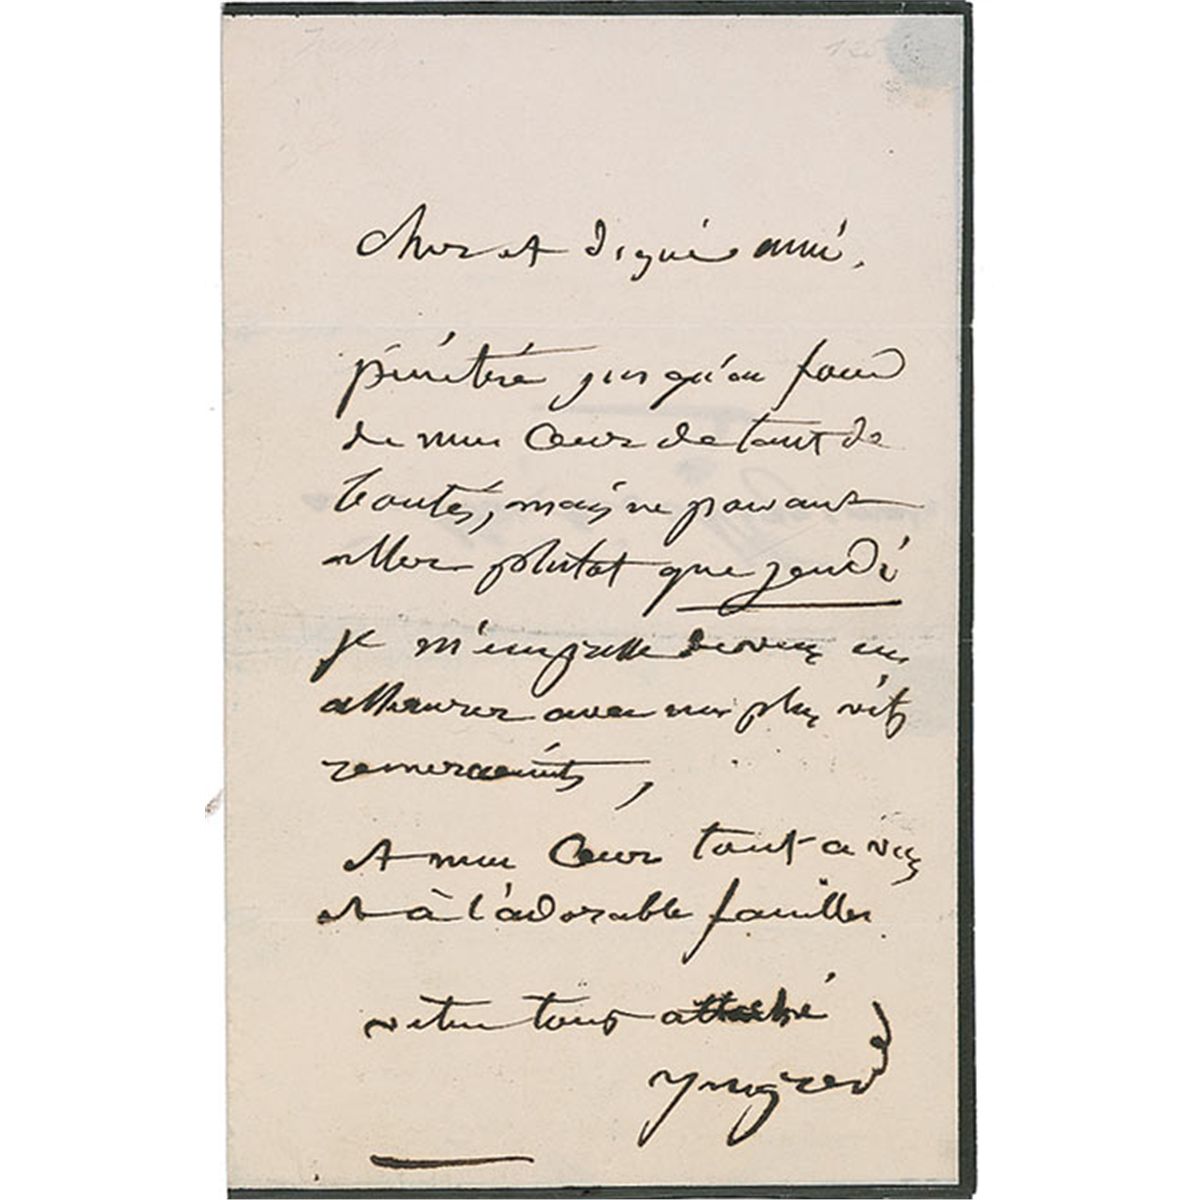 cher et digne ami,
pénétré jusqu'au fond
de mon Coeur de tant de
bontés, mais ne pouvant
aller plutot que jeudi
je m'empresse de vous en
assurer avec mes plus vifs
remerciments,
et mon Coeur tout a vous
et à l'adorable famille
votre tout attaché
Ingres